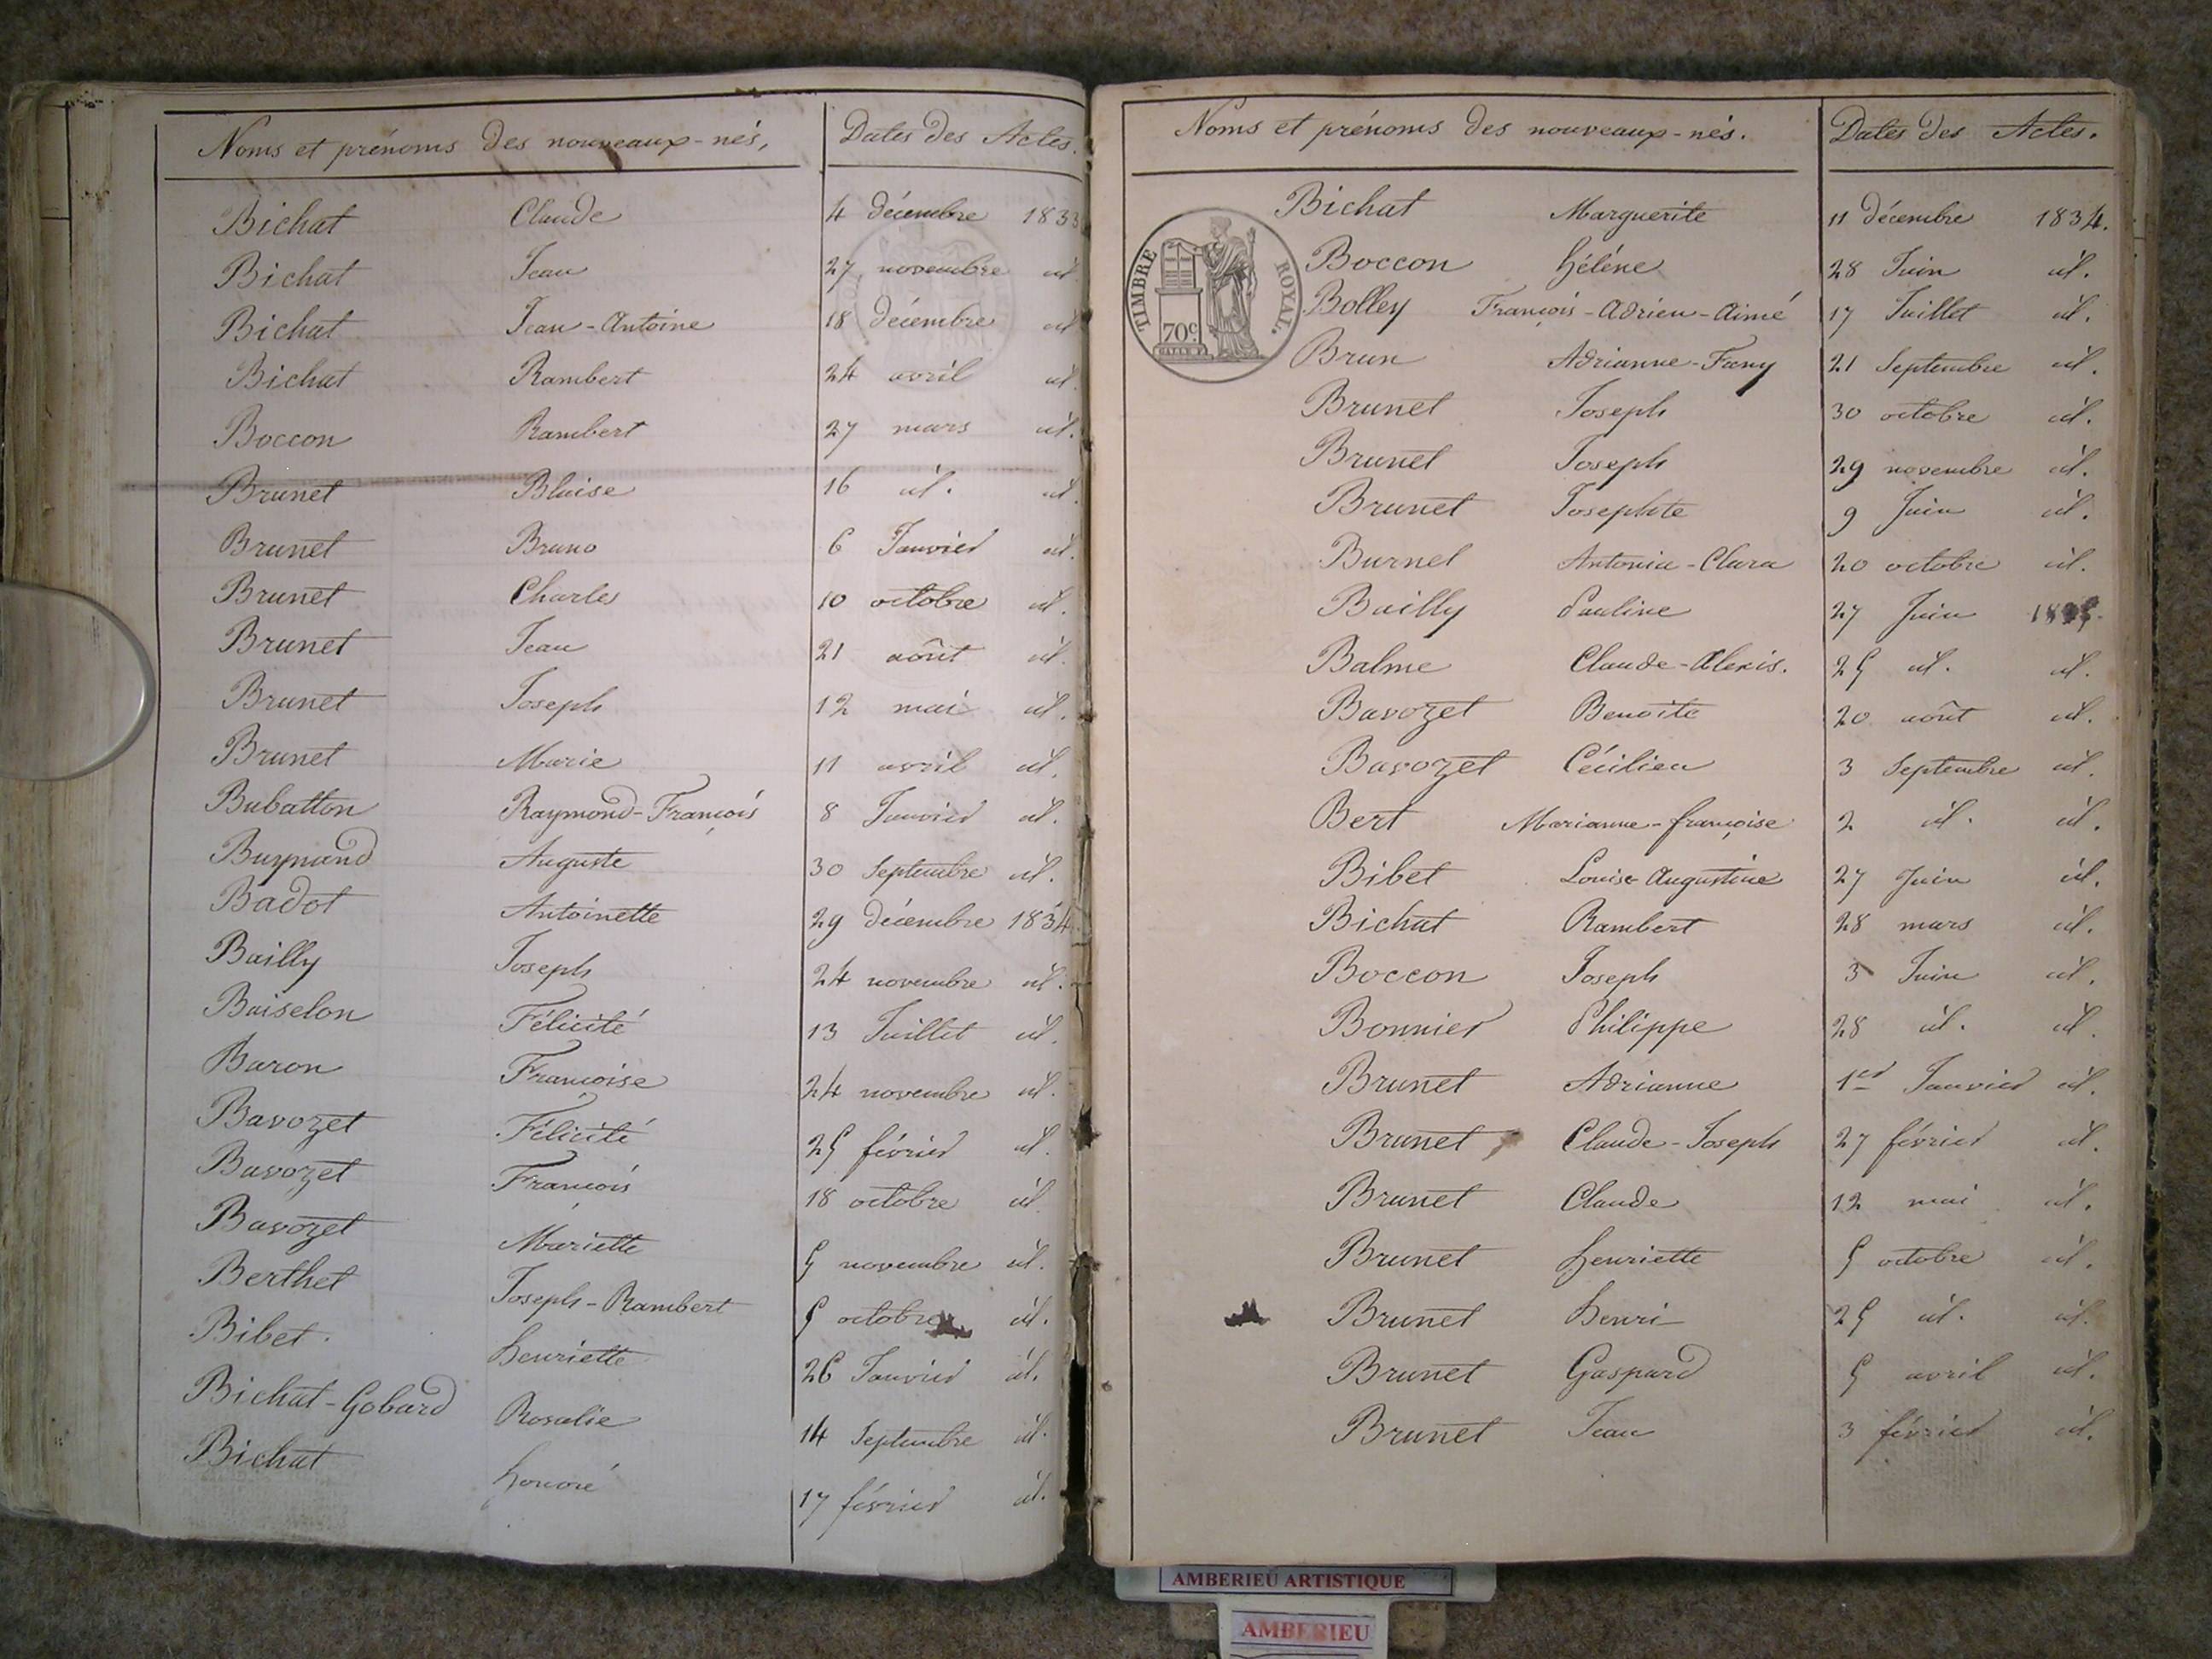 Noms et prénoms des nouveaux-nés, Dates des Actes.
Bichat Claude 4 décembre 1833
Bichat Jean 27 novembre id
Bichat Jean-Antoine 18 décembre id
Bichat Rambert 24 avril id.
Boccon Rambert 27 mars id.
Brunet Blaise 16 id. id.
Brunet Bruno 6 Janvier id.
Brunet Charles 10 octobre id.
Brunet Jean 21 août id.
Brunet Joseph 12 mai id.
Brunet Marie 11 avril id.
Bubatton Raymond-François 8 Janvier id.
Buynand Auguste 30 Septembre id.
Badot Antoinette 29 décembre 1834
Bailly Joseph 24 novembre id.
Baiselon Félicité 13 Juillet id.
Baron Françoise 24 novembre id.
Bavozet Félicité 25 février id.
Bavozet François 18 octobre id.
Bavozet Mariette 5 novembre id.
Berthet Joseph-Rambert 5 octobre id.
Bibet. henriette 26 Janvier id.
Bichat-Gobard Rosalie 14 Septembre id.
Bichat honoré 17 février id.
Noms et prénoms des nouveaux-nés. Dates des Actes.
Bichat Marguerite 11 décembre 1834.
Boccon hélène 28 Juin id.
Bolley François-Adrien-Aimé 17 Juillet id.
Brun Adrianne-Fany 21 Septembre id.
Brunet Joseph 30 octobre id.
Brunet Joseph 29 novembre id.
Brunet Josephte 9 Juin id.
Burnet Antonia-Clara 20 octobre id.
Bailly Pauline 27 Juin 1835.
Balme Claude-Alexis. 25 id. id.
Bavozet Benoite 20 août id.
Bavozet Cécilien 3 Septembre id.
Bert Marianne-françoise 2 id. id.
Bibet Louise Augustine 27 Juin id.
Bichat Rambert 28 mars id.
Boccon Joseph 3 Juin id.
Bonnier Philippe 28 id. id.
Brunet Adrianne 1er Janvier id.
Brunet Claude-Joseph 27 février id.
Brunet Claude 12 mai id.
Brunet henriette 5 octobre id.
Brunet henri 25 id. id.
Brunet Gaspard 5 avril id.
Brunet Jean 3 février id.
TIMBRE ROYAL.
70c
AMBERIEU ARTISTIQUE
AMBERIEU